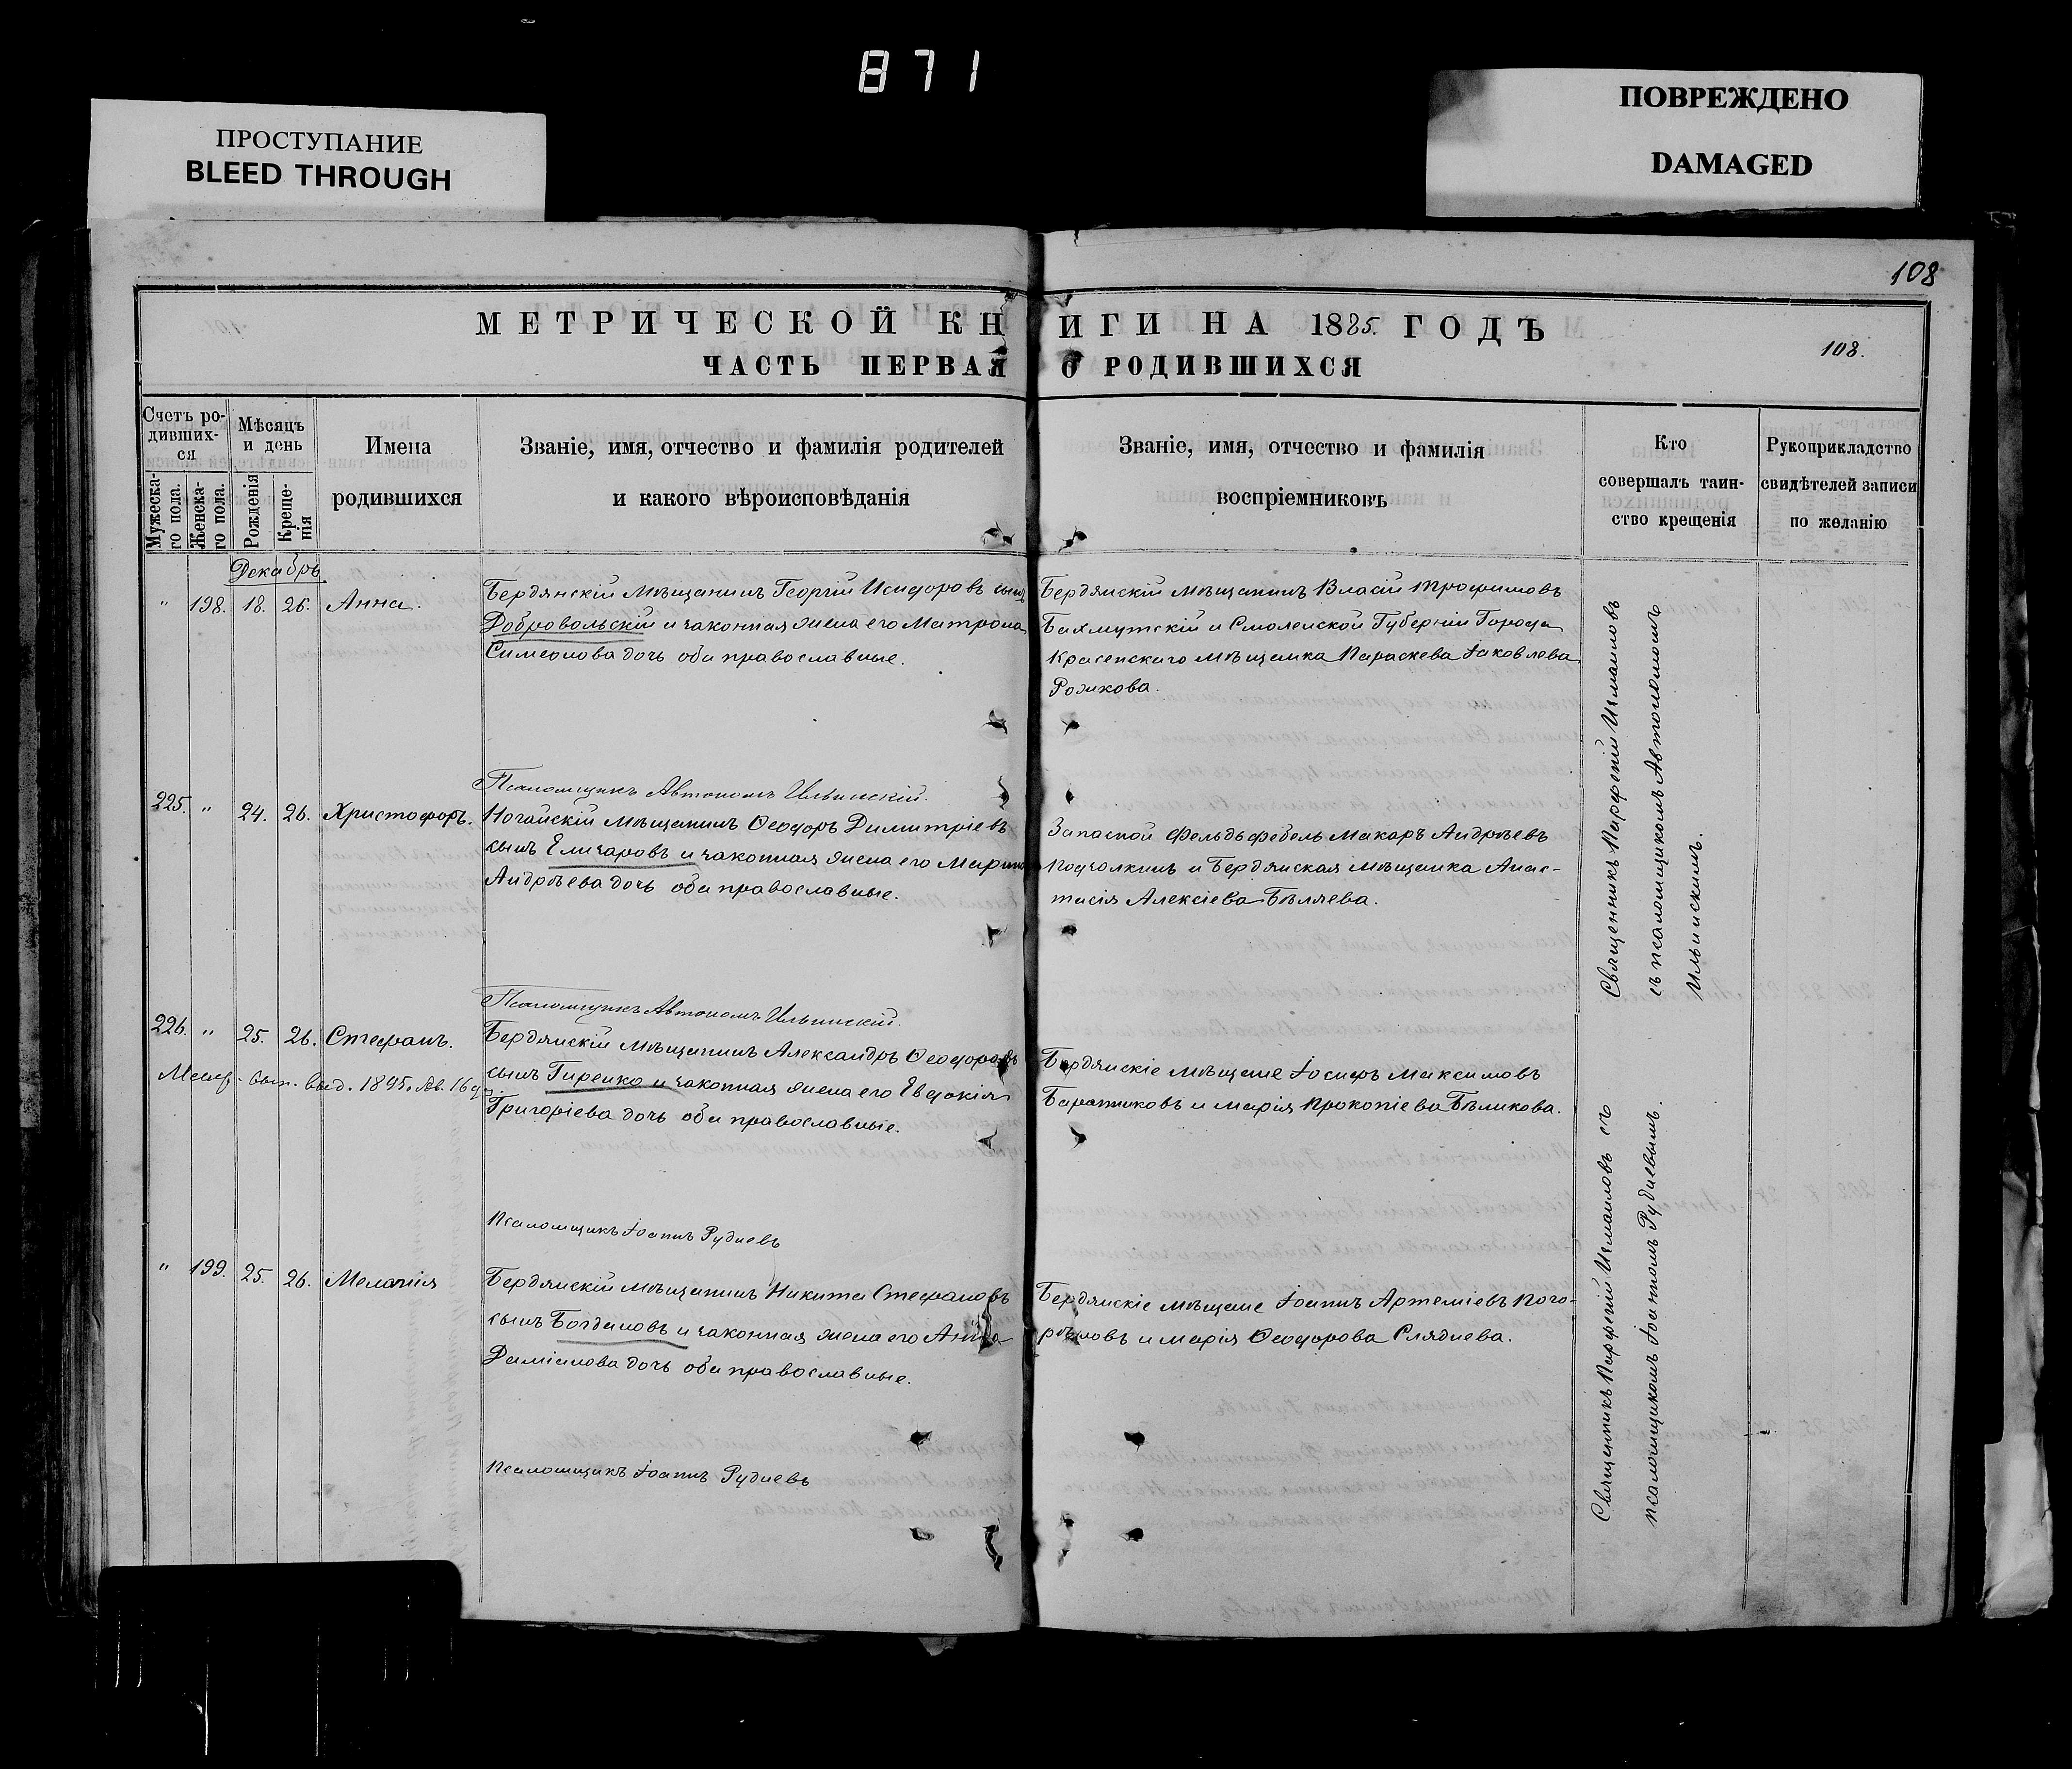 871
ПРОСТУПАНИЕ
BLEED THROUGH
ПОВРЕЖДЕНО
DAMAGED
108
МЕТРИЧЕСКОЙ КНИГИ НА 1885 ГОДЪ
ЧАСТЬ ПЕРВАЯ О РОДИВШИХСЯ
108.
Счетъ ро-
дивших-
ся
Мужеска-
го пола.
Женска-
го пола.
Мѣсяцъ
и день
Рожденія
Креще-
нія
Имена
родившихся
Званіе, имя, отчество и фамилія родителей
и какого вѣроисповѣданія
Званіе, имя, отчество и фамилія
воспріемниковъ
Кто
совершалъ таин-
ство крещенія
Рукоприкладство
свидѣтелей записи
по желанію
Декабрь
" 198. 18. 26. Анна.
Бердянскій мѣщанинъ Георгій Исидоровъ сынъ
Добровольскій и законная жена его Матрона
Симеонова дочь оба православные.
Бердянскій мѣщанинъ Власій Трофимовъ
Бахмутскій и Смоленской Губерніи Города
Красенскаго мѣщанка Параскева Іаковлева
Рожкова.
Псаломщикъ Автономъ Ильинскій.
225. " 24. 26. Христофоръ.
Ногайскій мѣщанинъ Ѳеодоръ Димитріевъ
сынъ Елизаровъ и законная жена его Марина
Андрѣева дочь оба православные.
Запасной Фельдфебель Макаръ Андрѣевъ
Подчолкинъ и Бердянская мѣщанка Анас-
тасія Алексіева Бѣляева.
Священникъ Парфеній Исмаиловъ
съ псаломщикомъ Автономомъ
Ильинскимъ.
Псаломщикъ Автономъ Ильинскій.
226. " 25. 26. Стефанъ.
вып. выд. 1895. Ав. 16
Бердянскій мѣщанинъ Александръ Ѳеодоровъ
сынъ Гиренко и законная жена его Евдокія
Григоріева дочь оба православные.
Бердянскіе мѣщане Іосифъ Максимовъ
Баранниковъ и Марія Прокопіева Бѣликова.
Псаломщикъ Іоаннъ Рудневъ
" 199. 25. 26. Меланія
Бердянскій мѣщанинъ Никита Стефановъ
сынъ Богдановъ и законная жена его Анна
Даміанова дочь оба православные.
Бердянскіе мѣщане Іоаннъ Артеміевъ Пого-
рѣловъ и Марія Ѳеодорова Сляднева.
Священникъ Парфеній Исмаиловъ съ
псаломщикомъ Іоанномъ Рудневымъ.
Псаломщикъ Іоаннъ Рудневъ